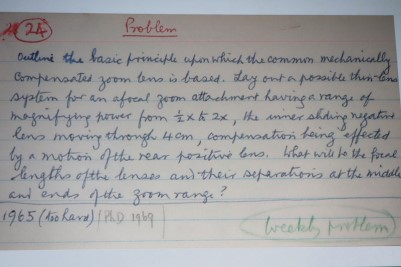 24 Problem
Outline the basic principle upon which the common mechanically
compensated zoom lens is based. Lay out a possible thin-lens
system for an afocal zoom attachment having a range of
magnifying power from ½x to 2x, the inner sliding negative
lens moving through 4cm, compensation being effected
by a motion of the rear positive lens. What will be the focal
lengths of the lenses and their separations at the middle
and ends of the zoom range?
1965 (too hard) (PhD 1969
(weekly problem)